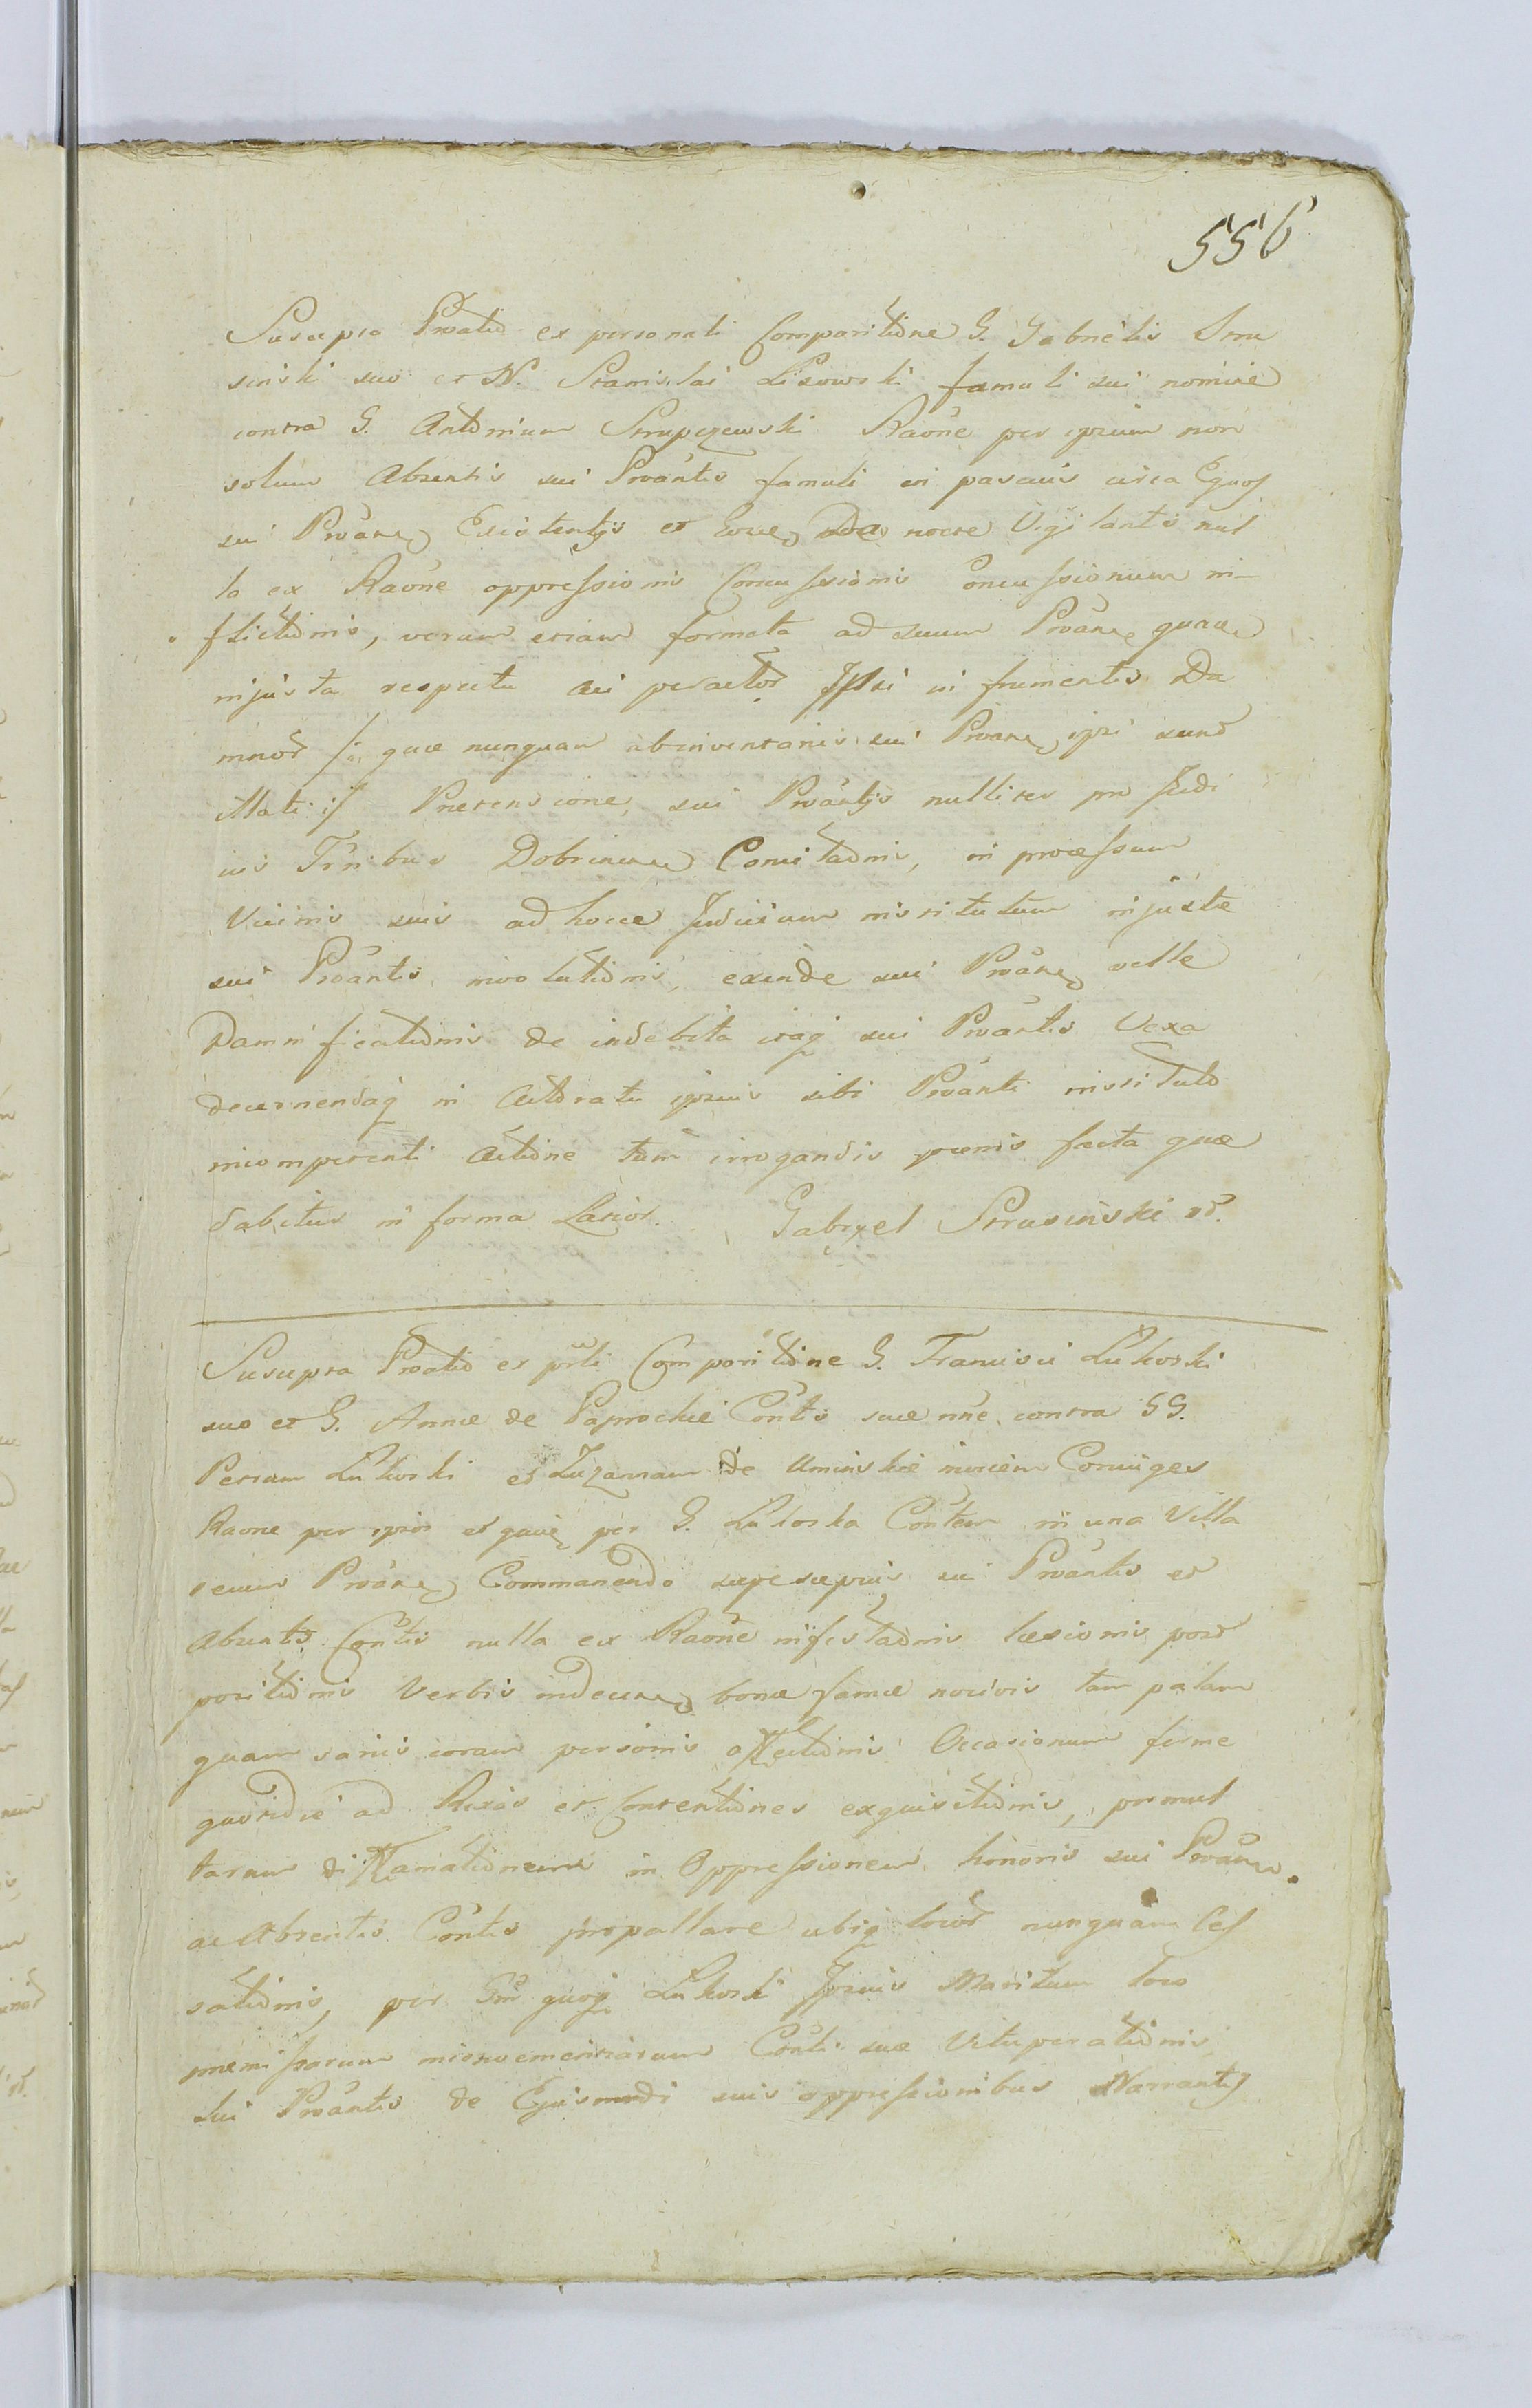 556
Suscepta Proatio ex personali Comparitione G. Gabrielis Stru
sinski suo et N. Stanislai Lisowski famuli sui nomine
contra G. Antonium Strupczewski Raone per ipsum non
solum Absentis sui Proantis famuli in pascuis circa Equos
sui Proante Existentis et hocce de nocte Vigilantis nul
la ex Raone oppressionis Concussionis Concussionum in-
flictionis, verum etiam formata ad suum Proante quaue
injusta respectu aei peractor Ipsi in frumentis Da
mnor /: quae nunquam ab inventariis sui Proante ipsi sunt
illati :/ Pretensione, sui Proantis nulliter pro Judi
ciis Trnibus Dobrinen Comitationis, in processum
Vicinis suis ad hocce Judicium institutum injuste
sui Proantis involutionis, exinde sui Proante velle
Damnificationis de indebita itaq sui Proantis Vexa
decernendaq in Actoratu ipsius sibi Proanti instituto
incompetenti Actione tum irrogandis poenis facta quae
dabitur in forma Latior. Gabryel Strusinski
Suscepta Proatio ex prli Comparitione G. Francisci Lukoski
suo et G. Annae de Paprockie Contis suae nne contra GG.
Petrum Lukoski et Zuzannam de Uminskie invicem Coniuges
Raone per ipsos et quiq per G. Lukoska Contem in una Villa
secum Proante Commanendo saepesaepius sui Proantis et
Absentis Contis nulla ex Raone infestationis laesionis post
positionis Verbis indecen bonae famae nocivis tam palam
quam variis coram personis affectionis Occasionum ferme
quotidie ad Rixas et Contentiones exquisitionis, per mul
tarum diffamationem in Oppressionem honoris sui Proante
ac Absentis Contis propallare ubiq locor nunquam Ces
sationis, per Gm quoq Lukoski Ipsius Maritum loco
premissarum inconvenientiarum Conti suae Vituperationis,
sui Proantis de Ejusmodi suis oppressionibus Narrantis